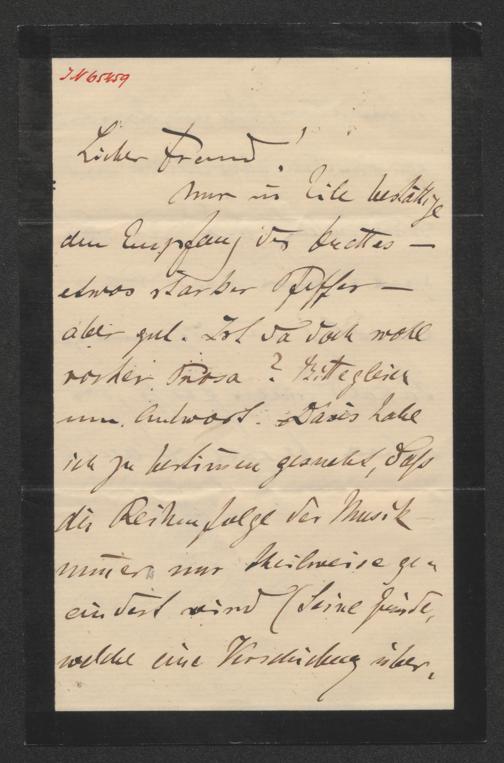 IN 65459
Lieber Freund!
Nur in Eile bestättige
den Empfang des
etwas starker Pfeffer –
aber gut. Ist da doch wohl
vorher Prosa? Bitte gleich
um Antwort. habe
ich zu bestimmen gesucht, daß
die Reihenfolge der Musik
numer nur theilweise ge
eindert wird (Seine Gründe,
welche eine Verschiebung über,